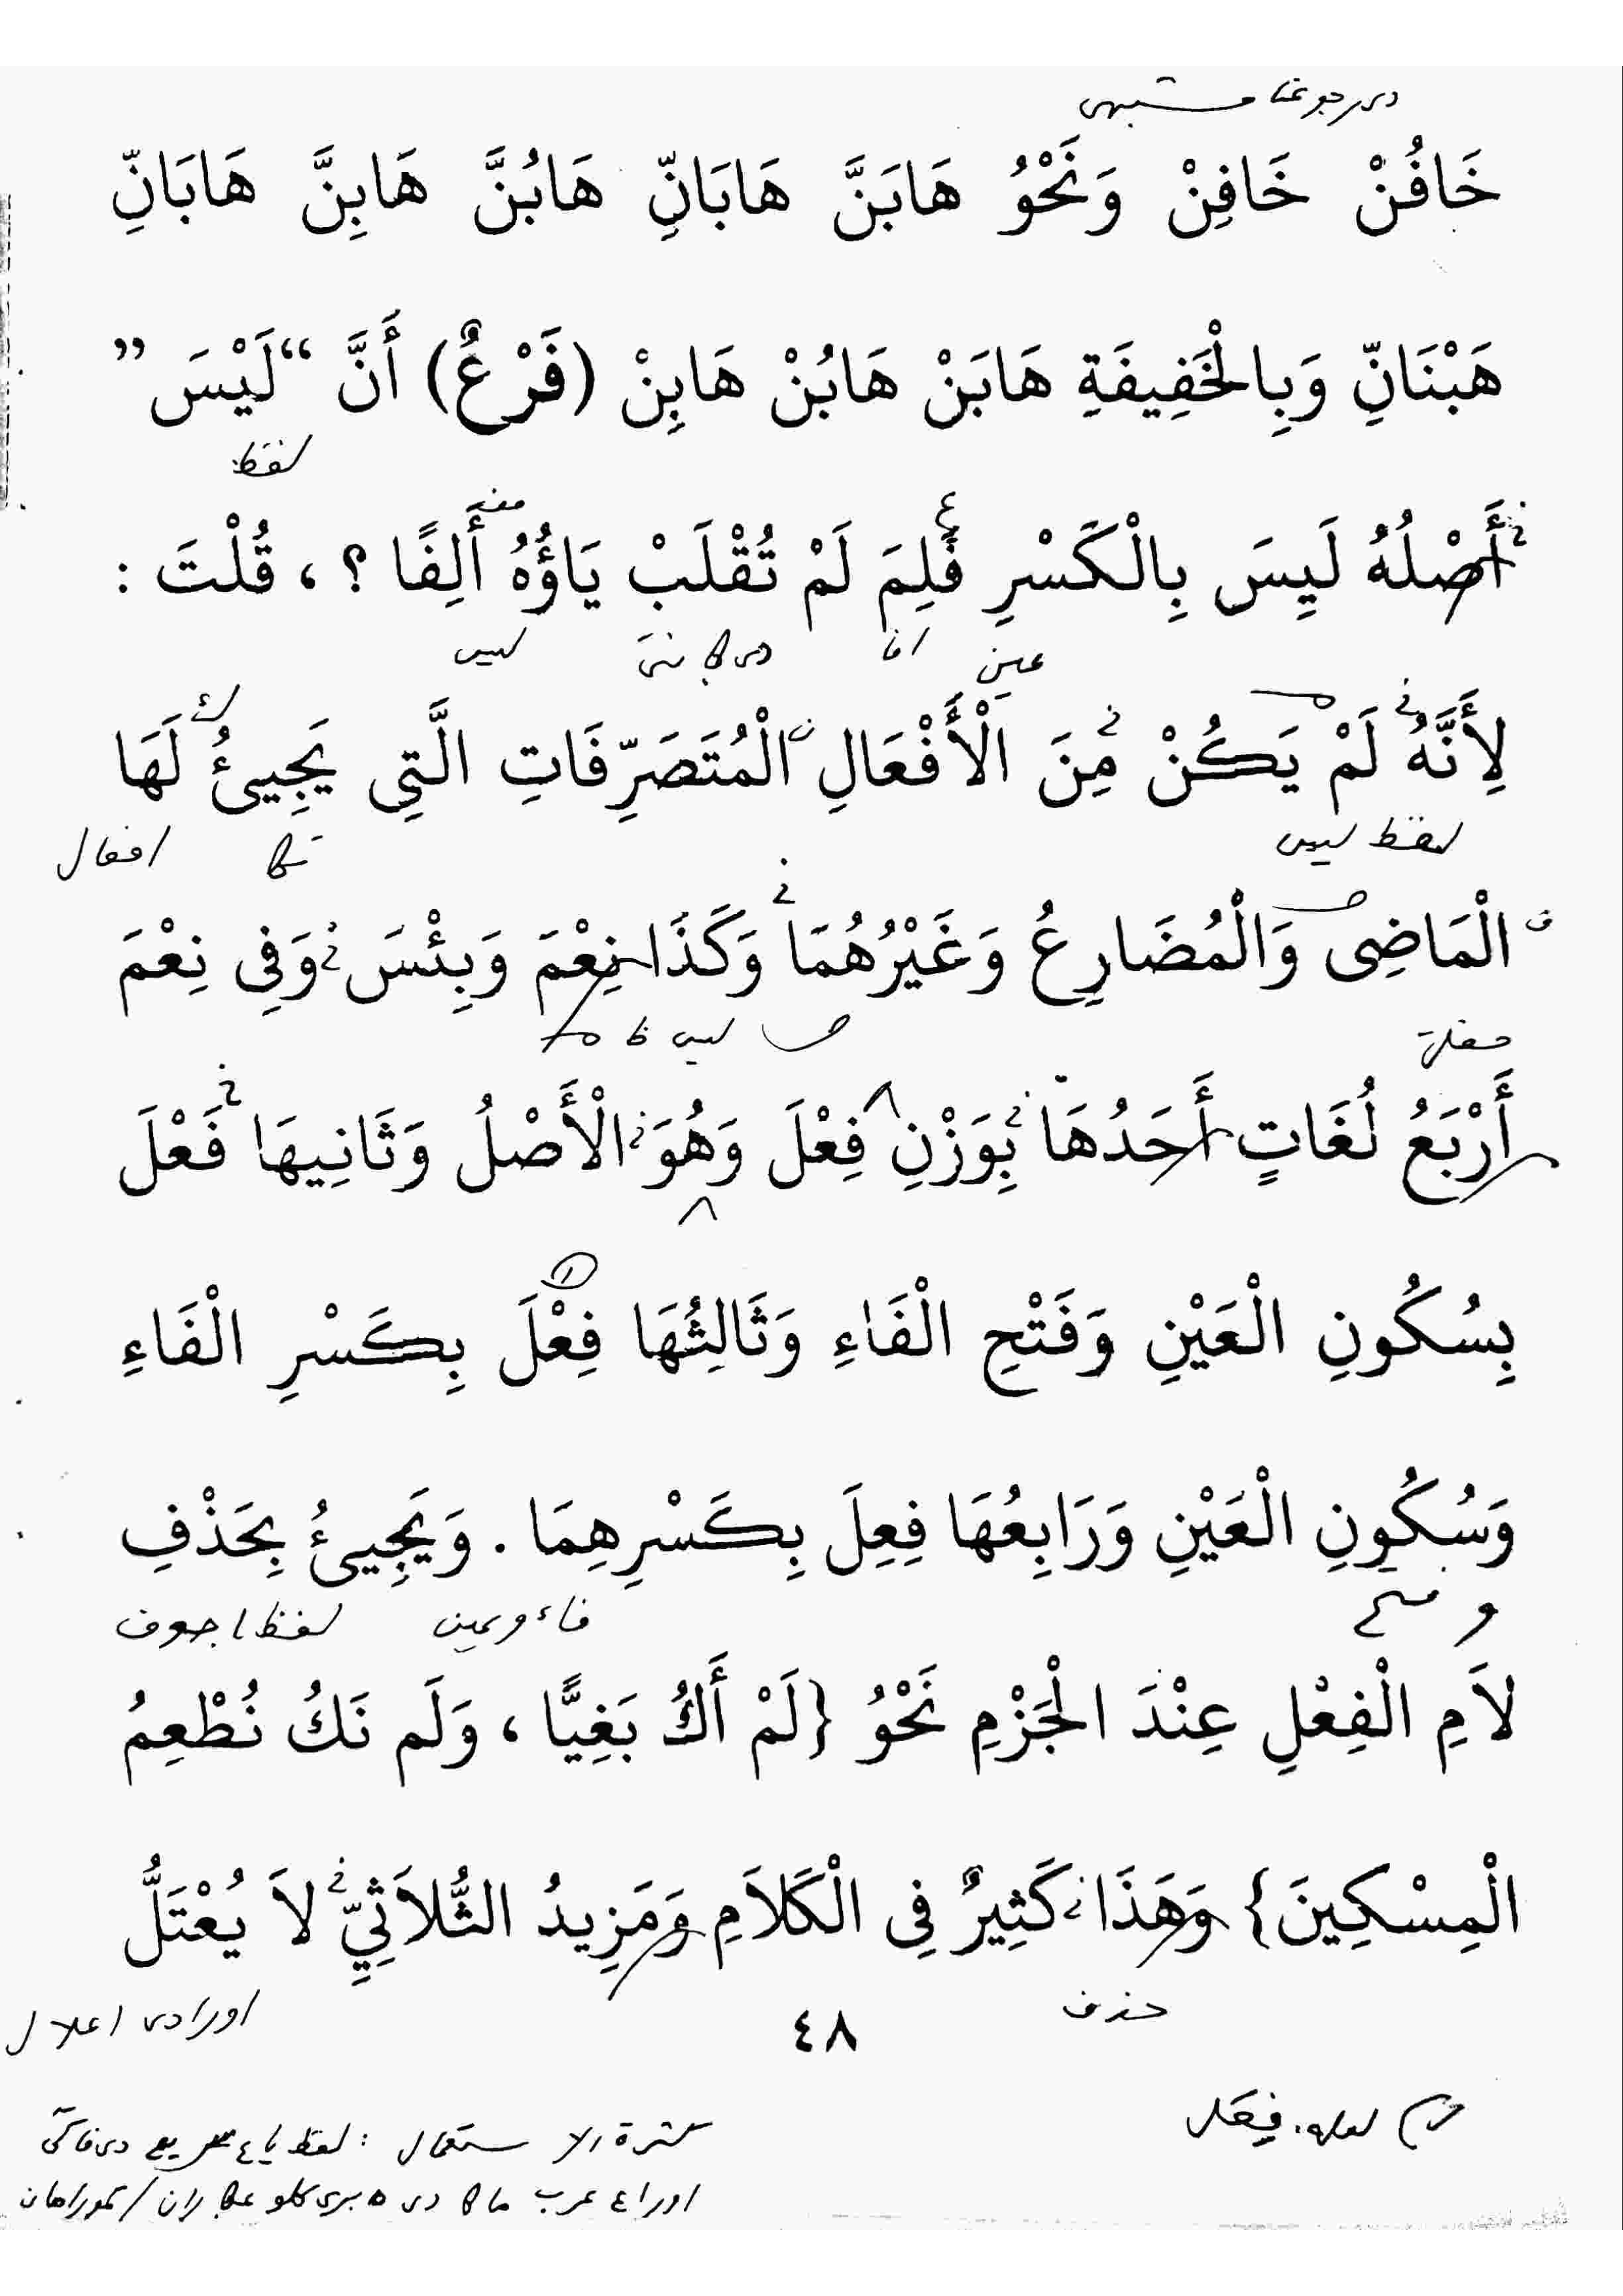 خَافُنْ خَافِنْ وَنَحْوُ هَابَنَّ هَابَانِّ هَابُنَّ هَابِنَّ هَابَانِّ
هَبْنَانِّ وَبِالْخَفِيفَةِ هَابَنْ هَابُنْ هَابِنْ (فَرْعٌ) أَنَّ “لَيْسَ”
لفظ
أَصْلُهُ لَيِسَ بِالْكَسْرِ فَلِمَ لَمْ تُقْلَبْ يَاؤُهُ أَلِفًا ؟ ، قُلْتَ :
عين افا ليس
لِأَنَّهُ لَمْ يَكُنْ مِنَ الْأَفْعَالِ الْمُتَصَرِّفَاتِ الَّتِي يَجِيئُ لَهَا
لفظ ليس افعال
الْمَاضِى وَالْمُضَارِعُ وَغَيْرُهُمَا وَكَذَا نِعْمَ وَبِئْسَ وَفِى نِعْمَ
ليس
أَرْبَعُ لُغَاتٍ أَحَدُهَا بِوَزْنِ فِعْلَ وَهُوَ الْأَصْلُ وَثَانِيهَا فَعْلَ
بِسُكُونِ الْعَيْنِ وَفَتْحِ الْفَاءِ وَثَالِثُهَا فِعْلَ بِكَسْرِ الْفَاءِ
وَسُكُونِ الْعَيْنِ وَرَابِعُهَا فِعِلَ بِكَسْرِهِمَا . وَيَجِيئُ بِحَذْفِ
فاء وعين لفظ اجوف
لاَمِ الْفِعْلِ عِنْدَ الْجَزْمِ نَحْوُ {لَمْ أَكُ بَغِيًّا ، وَلَم نَكُ نُطْعِمُ
الْمِسْكِينَ} وَهَذَا كَثِيرٌ فِى الْكَلاَمِ وَمَزِيدُ الثُّلاَثِيِّ لاَ يُعْتَلُّ
حذف اورا دى اعلال
٤٨
فعل
كثرة الاستعمال : لفظ
اورا عرب